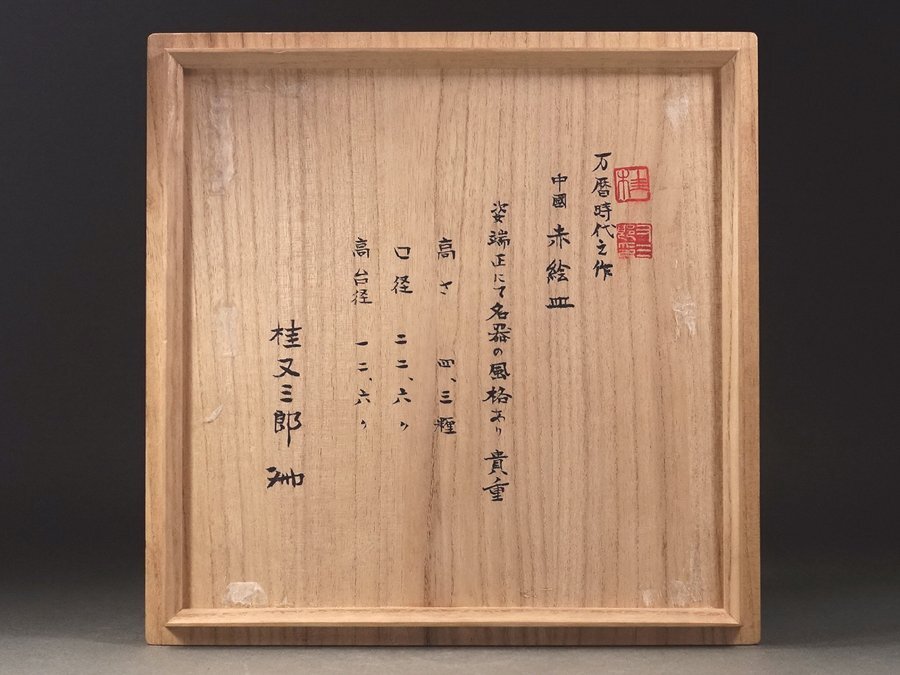 万暦時代之作
中國 赤絵皿
姿端正にて名器の風格あり 貴重
高さ 四、三糎
口径 二二、六〃
高台径 一二、六〃
桂又三郎
桂